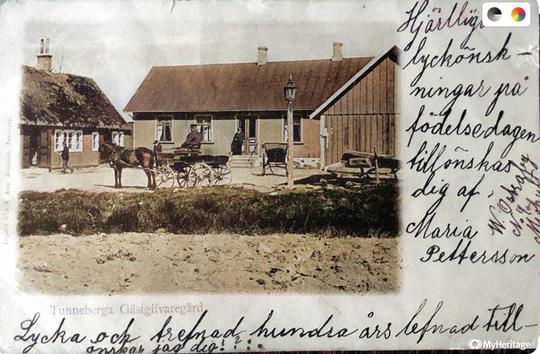 Hjärtliga
lyckönsk-
ningar på
födelsedagen
tillönskas
dig af
Maria
Pettersson
Tunneberga Gäsigifvaregård
Lycka och trefnad, hundra års lefnad till-
önskar jag dig!?...
MyHeritage